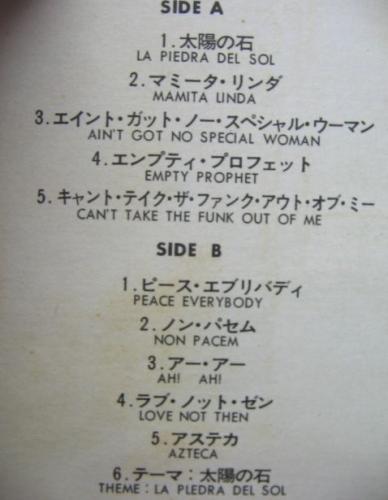 SIDE A
1.太陽の石
LA PIEDRA DEL SOL
2.マミータ・リンダ
MAMITA LINDA
3.エイント・ガット・ノー・スペシャル・ウーマン
AIN'T GOT NO SPECIAL WOMAN
4.エンプティ・プロフェット
EMPTY PROPHET
5.キャント・テイク・ザ・ファンク・アウト・オブ・ミー
CAN'T TAKE THE FUNK OUT OF ME
SIDE B
1.ピース・エブリバディ
PEACE EVERYBODY
2.ノン・パセム
NON PACEM
3.アー・アー
AH! AH!
4.ラブ・ノット・ゼン
LOVE NOT THEN
5.アステカ
AZTECA
6.テーマ:太陽の石
THEME:LA PLEDRA DEL SOL